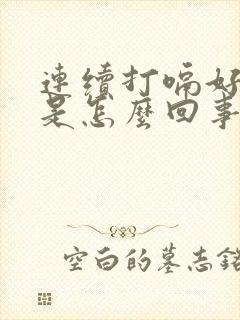 連續打嗝好
是怎麼回事
空白的墓志銘